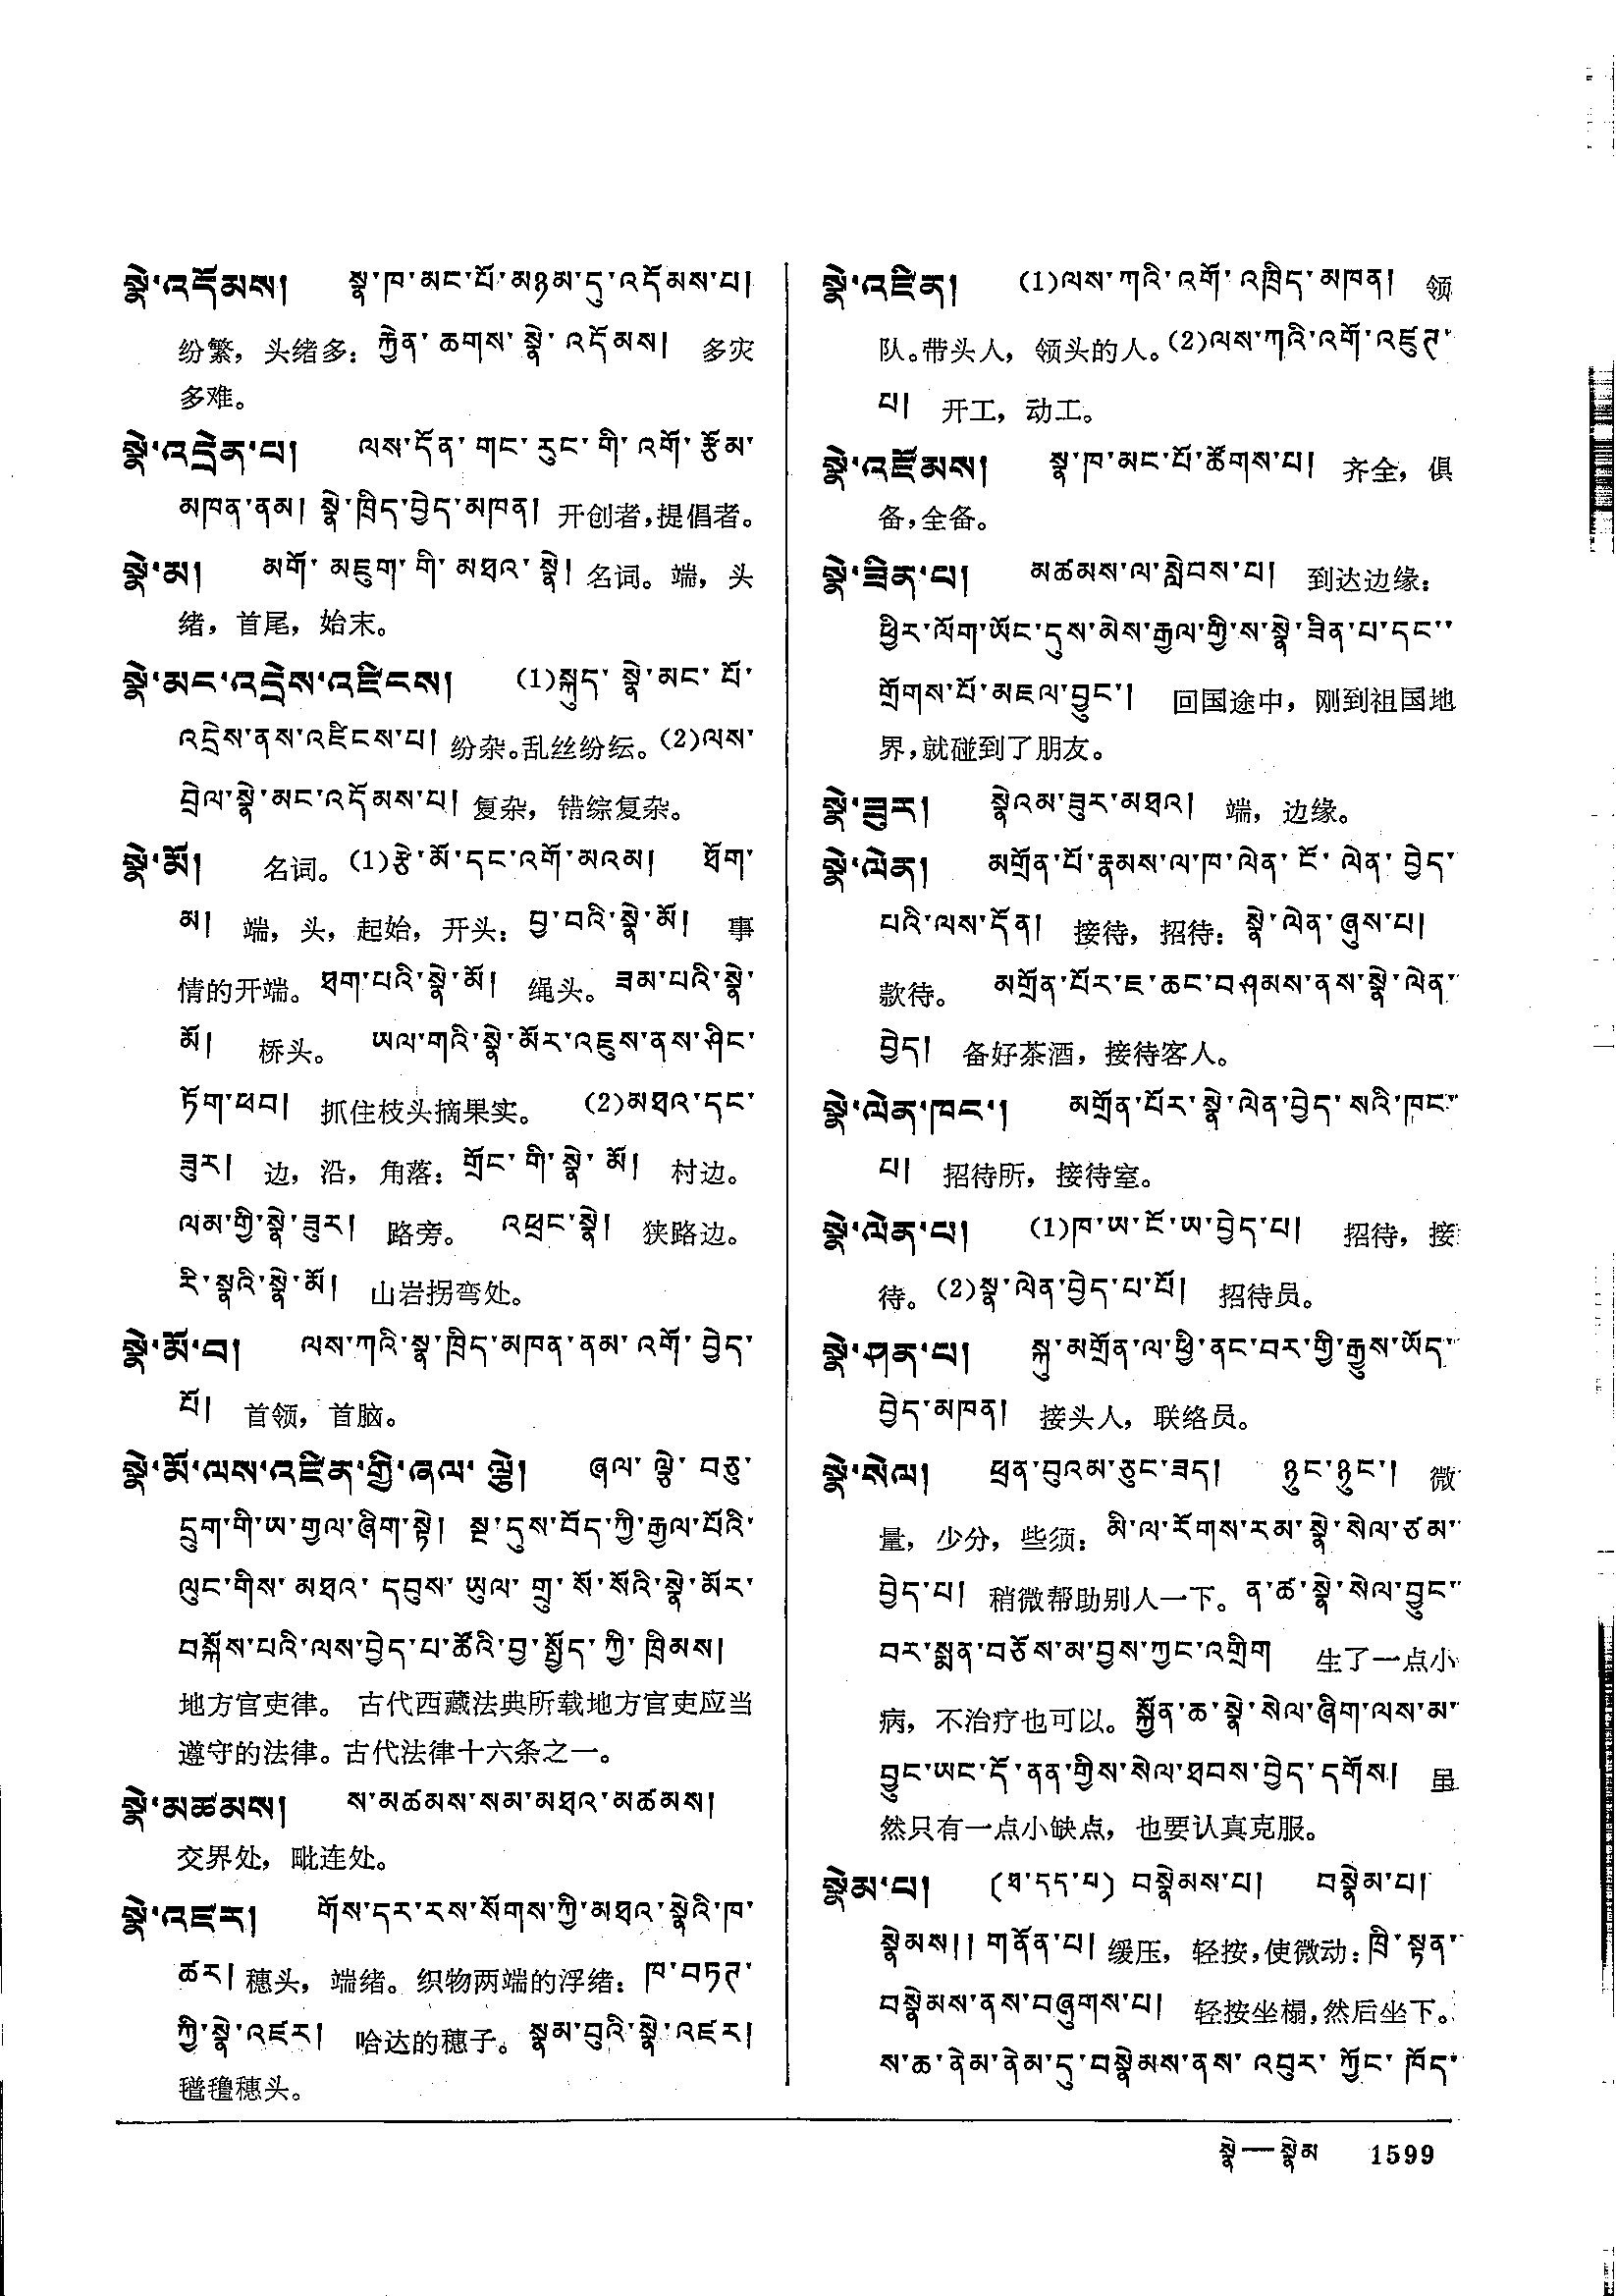 སྣེ་འདོམས། སྣ་ཁ་མང་པོ་མཉམ་དུ་འདོམས་པ།
纷繁，头绪多：རྐྱེན་ཆགས་སྣེ་འདོམས། 多灾
多难。
སྣེ་འདྲེན་པ། ལས་དོན་གང་རུང་གི་འགོ་རྩོམ་
མཁན་ནམ། སྣེ་ཁྲིད་བྱེད་མཁན། 开创者，提倡者。
སྣེ་མ། མགོ་མཇུག་གི་མཐའ་སྣེ། 名词。端，头
绪，首尾，始末。
སྣེ་མང་འདྲེས་འཛིངས། (1)སྐུད་སྣེ་མང་པོ་
འདྲེས་ནས་འཛིངས་པ། 纷杂。乱丝纷纭。(2)ལས་
བྲེལ་སྣེ་མང་འདོམས་པ། 复杂，错综复杂。
སྣེ་མོ། 名词。(1)རྩེ་མོ་དང་འགོ་མའམ། ཐོག་
མ། 端，头，起始，开头：བྱ་བའི་སྣེ་མོ། 事
情的开端。ཐག་པའི་སྣེ་མོ། 绳头。ཟམ་པའི་སྣེ་
མོ། 桥头。 ཡལ་གའི་སྣེ་མོར་འཇུས་ནས་ཤིང་
ཏོག་ཕབ། 抓住枝头摘果实。 (2)མཐའ་དང་
ཟུར། 边，沿，角落：གྲོང་གི་སྣེ་མོ། 村边。
ལམ་གྱི་སྣེ་ཟུར། 路旁。 འཕྲང་སྣེ། 狭路边。
རི་སྣའི་སྣེ་མོ། 山岩拐弯处。
སྣེ་མོ་བ། ལས་ཀའི་སྣ་ཁྲིད་མཁན་ནམ་འགོ་བྱེད་
པོ། 首领，首脑。
སྣེ་མོ་ལས་འཛིན་གྱི་ཞལ་ལྕེ། ཞལ་ལྕེ་བཅུ་
དྲུག་གི་ཨ་གྱལ་ཞིག་སྟེ། སྔ་དུས་བོད་ཀྱི་རྒྱལ་པོའི་
ལུང་གིས་མཐའ་དབུས་ཡུལ་གྲུ་སོ་སོའི་སྣེ་མོར་
བསྐོས་པའི་ལས་བྱེད་པ་ཚོའི་བྱ་སྤྱོད་ཀྱི་ཁྲིམས།
地方官吏律。 古代西藏法典所载地方官吏应当
遵守的法律。古代法律十六条之一。
སྣེ་མཚམས། ས་མཚམས་སམ་མཐའ་མཚམས།
交界处，毗连处。
སྣེ་འཛར། གོས་དར་རས་སོགས་ཀྱི་མཐའ་སྣེའི་ཁ་
ཚར། 穗头，端绪。织物两端的浮绪：ཁ་བཏགས་
ཀྱི་སྣེ་འཛར། 哈达的穗子。སྣམ་བུའི་སྣེ་འཛར།
氆氇穗头。
སྣེ་འཛིན། (1)ལས་ཀའི་འགོ་འཁྲིད་མཁན། 领
队。带头人，领头的人。(2)ལས་ཀའི་འགོ་འཛུགས་
པ། 开工，动工。
སྣེ་འཛོམས། སྣ་ཁ་མང་པོ་ཚོགས་པ། 齐全，俱
备，全备。
སྣེ་ཟིན་པ། མཚམས་ལ་སླེབས་པ། 到达边缘：
ཕྱིར་ལོག་ཡོང་དུས་མེས་རྒྱལ་གྱི་ས་སྣེ་ཟིན་པ་དང་
གྲོགས་པོ་མཇལ་བྱུང་། 回国途中，刚到祖国地
界，就碰到了朋友。
སྣེ་ཟུར། སྣེའམ་ཟུར་མཐའ། 端，边缘。
སྣེ་ལེན། མགྲོན་པོ་རྣམས་ལ་ཁ་ལེན་ངོ་ལེན་བྱེད་
པའི་ལས་དོན། 接待，招待：སྣེ་ལེན་ཞུས་པ།
款待。 མགྲོན་པོར་ཇ་ཆང་བཤམས་ནས་སྣེ་ལེན་
བྱེད། 备好茶酒，接待客人。
སྣེ་ལེན་ཁང་། མགྲོན་པོར་སྣེ་ལེན་བྱེད་སའི་ཁང་
པ། 招待所，接待室。
སྣེ་ལེན་པ། (1)ཁ་ཨ་ངོ་ཨ་བྱེད་པ། 招待，接
待。(2)སྣ་ལེན་བྱེད་པ་པོ། 招待员。
སྣེ་ཤན་པ། སྐུ་མགྲོན་ལ་ཕྱི་ནང་བར་གྱི་རྒྱུས་ཡོད་
བྱེད་མཁན། 接头人，联络员。
སྣེ་སེལ། ཕྲན་བུའམ་ཅུང་ཟད། ཉུང་ཉུང་། 微
量，少分，些须：མི་ལ་རོགས་རམ་སྣེ་སེལ་ཙམ་
བྱེད་པ། 稍微帮助别人一下。ན་ཚ་སྣེ་སེལ་བྱུང་
བར་སྨན་བཅོས་མ་བྱས་ཀྱང་འགྲིག 生了一点小
病，不治疗也可以。སྐྱོན་ཆ་སྣེ་སེལ་ཞིག་ལས་མ་
བྱུང་ཡང་དོ་ནན་གྱིས་སེལ་ཐབས་བྱེད་དགོས། 虽
然只有一点小缺点，也要认真克服。
སྣེམ་པ། (ཐ་དད་པ) བསྣེམས་པ། བསྣེམ་པ།
སྣེམས།། གནོན་པ། 缓压，轻按，使微动：ཁྲི་སྟན་
བསྣེམས་ནས་བཞུགས་པ། 轻按坐榻，然后坐下。
ས་ཆ་ནེམ་ནེམ་དུ་བསྣེམས་ནས་འབུར་ཀྱོང་ཁོད་
སྣེ—སྣེམ 1599